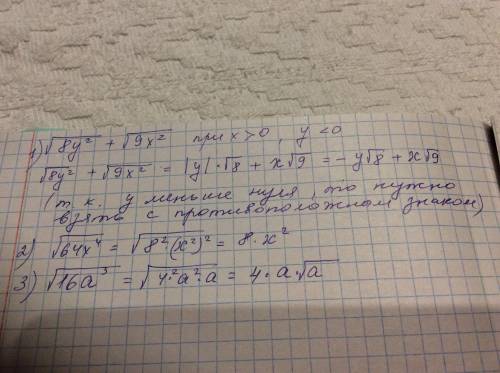 1) √8y² + √9x² при x > 0, y < 0
√8y² + √9x² = |y|·√8 + x√9 = -y√8 + x√9
(т.к. y меньше нуля, то нужно
взять с противоположном знаком)
2) √64x⁴ = √8²·(x²)² = 8·x²
3) √16a³ = √4²·a²·a = 4·a·√a